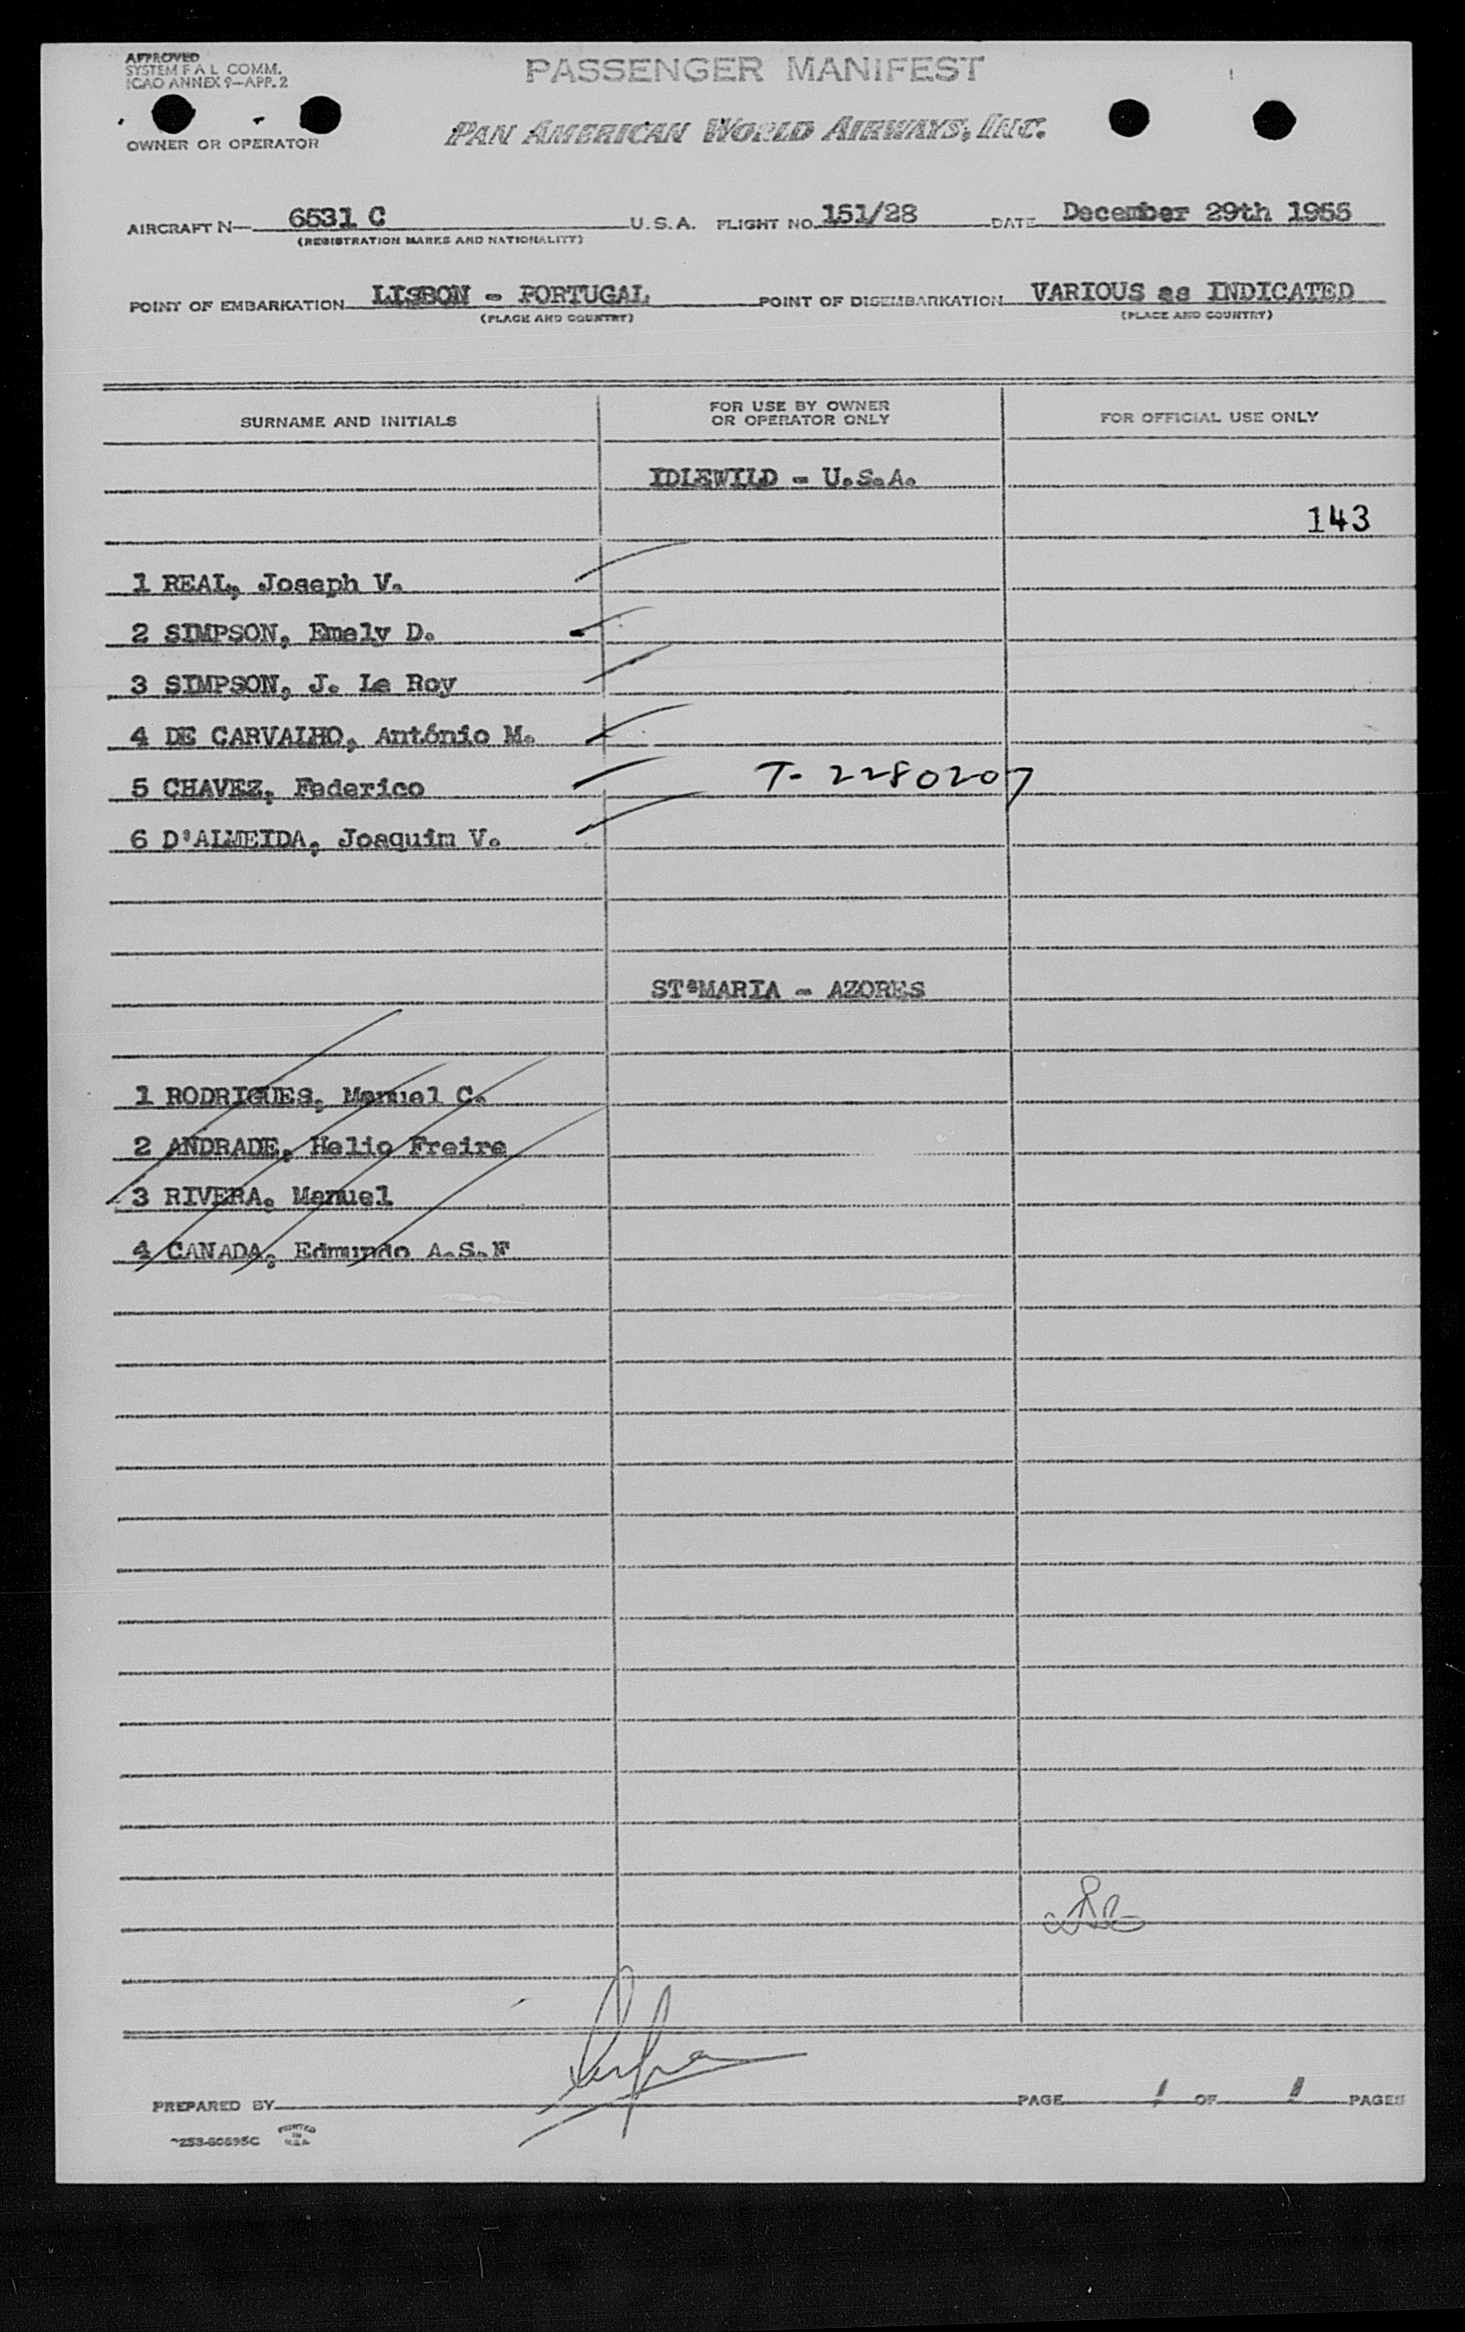 APPROVED
SYSTEM F A L COMM.
ICAO ANNEX 9-APP. 2
PASSENGER MANIFEST
OWNER OR OPERATOR
PAN AMERICAN WORLD AIRWAYS, INC.
AIRCRAFT N- 6531 C U.S.A. FLIGHT NO. 151/28 DATE December 29th 1955
(REGISTRATION MARKS AND NATIONALITY)
POINT OF EMBARKATION LISBON - PORTUGAL POINT OF DISEMBARKATION VARIOUS as INDICATED
(PLACE AND COUNTRY) (PLACE AND COUNTRY)
SURNAME AND INITIALS FOR USE BY OWNER OR OPERATOR ONLY FOR OFFICIAL USE ONLY
IDLEWILD - U.S.A.
143
1 REAL, Joseph V.
2 SIMPSON, Emely D.
3 SIMPSON, J. Le Roy
4 DE CARVALHO, António M.
5 CHAVEZ, Federico T- 2280207
6 D'ALMEIDA, Joaquim V.
STªMARIA - AZORES
1 RODRIGUES, Manuel C.
2 ANDRADE, Helio Freire
3 RIVERA, Manuel
4 CANADA, Edmundo A.S.F
PREPARED BY PAGE 1 OF 1 PAGES
PRINTED IN U.S.A.